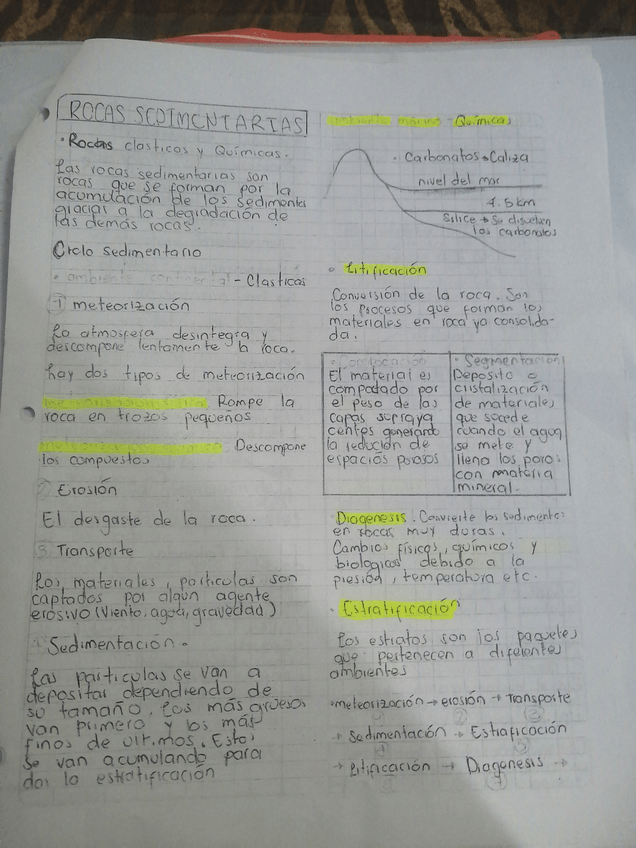 ROCAS SEDIMENTARIAS
· Rocas clasticos y Químicas.
Las rocas sedimentarias son
rocas que se forman por la
acumulación de los sedimentos
gracias a la degradación de
las demás rocas.
Ciclo sedimentario
· ambiente continental - Clasticas
① meteorización
La atmosfera desintegra y
descompone lentamente la roca.
hay dos tipos de meteorización
Rompe la
roca en trozos pequeños
Descompone
los compuestos
② Erosión
El desgaste de la roca.
3. Transporte
Los materiales, particulas son
captados por algun agente
erosivo (Viento, agua, gravedad)
Sedimentación.
Las particulas se van a
depositar dependiendo de
su tamaño. Los más gruesos
van primero y los más
finos de ultimos. Estos
se van acumulando para
dar la estratificación
ambiente marino - Químicas
· Carbonatos → Caliza
nivel del mar
4.5 km
Silice → Se disuelven
los carbonatos
· Litificación
Conversión de la roca. Son
los procesos que forman los
materiales en roca ya consolida-
da.
· Compactación
El material es
compactado por
el peso de las
capas supraya
centes generando
la redución de
espacios porosos
· Segmentación
Deposito o
cristalización
de materiales
que sucede
cuando el agua
se mete y
llena los poros
con materia
mineral.
Diagenesis. Convierte los sedimentos
en rocas muy duras.
Cambios físicos, químicos y
biologicos debido a la
presión, temperatura etc.
· Estratificación
Los estratos son los paquetes
que pertenecen a diferentes
ambientes
· meteorización → erosión → Transporte
→ Sedimentación → Estraficación
→ Litificación → Diagenesis →